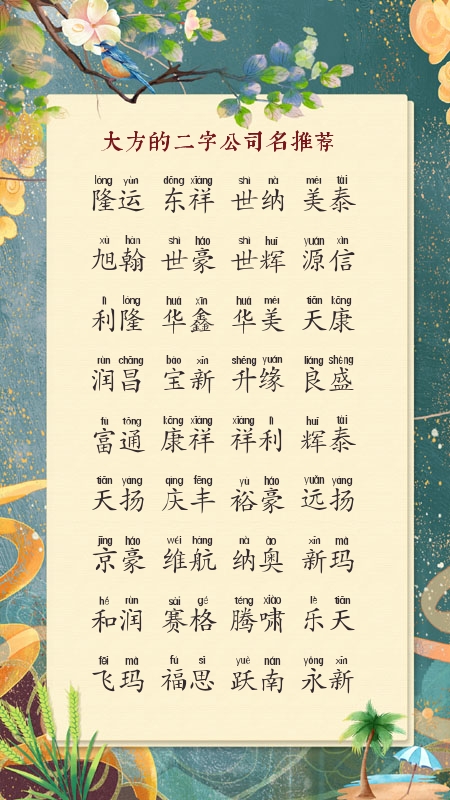 大方的二字公司名推荐
lóng yùn dōng xiáng shì nà měi tài
隆运 东祥 世纳 美泰
xù hàn shì háo shì huī yuán xìn
旭翰 世豪 世辉 源信
lì lóng huá xīn huá měi tiān kāng
利隆 华鑫 华美 天康
rùn chāng bǎo xīn shēng yuán liáng shèng
润昌 宝新 升缘 良盛
fù tōng kāng xiáng xiáng lì huī tài
富通 康祥 祥利 辉泰
tiān yáng qìng fēng yù háo yuǎn yáng
天扬 庆丰 裕豪 远扬
jīng háo wéi háng nà ào xīn mǎ
京豪 维航 纳奥 新玛
hé rùn sài gé téng xiào lè tiān
和润 赛格 腾啸 乐天
fēi mǎ fú sī yuè nán yǒng xīn
飞玛 福思 跃南 永新